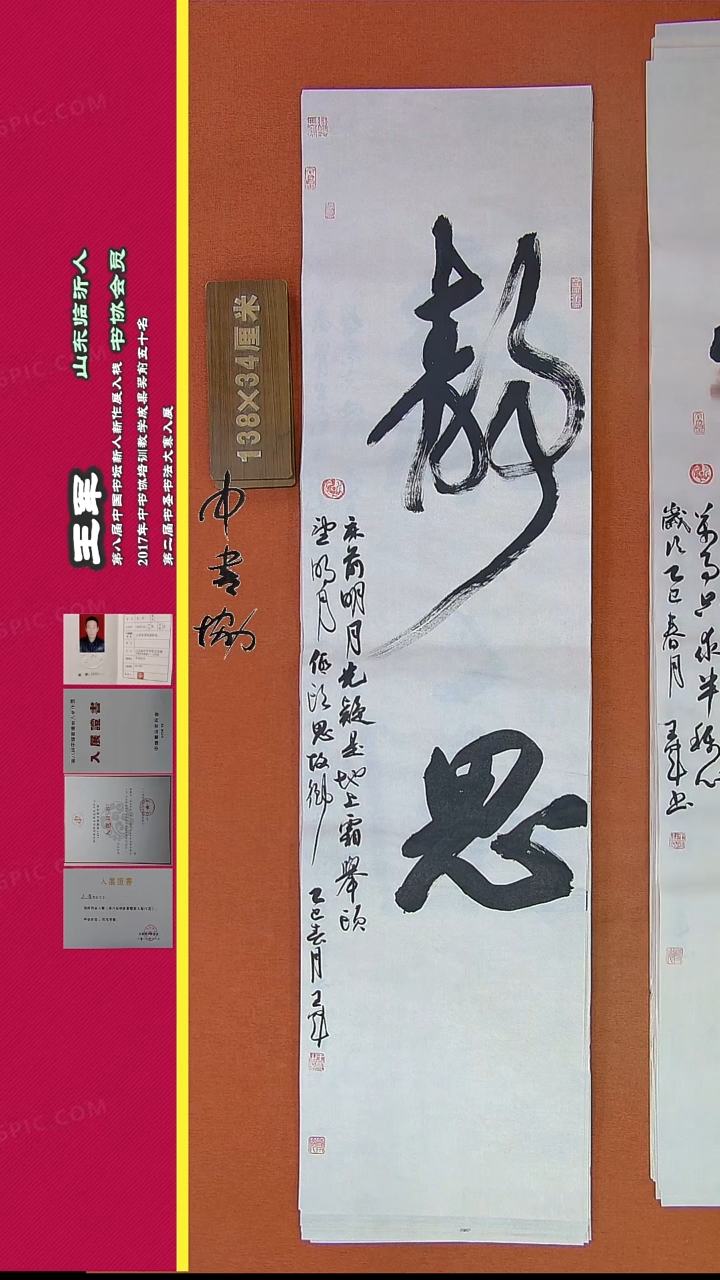 王军
山东临沂人
书协会员
第八届中国书坛新人新作展入展
2017年中书协培训教学成果奖前五十名
第二届书圣书法大赛入展
入展證書
入展證書
138×34厘米
中書協
靜思
床前明月光疑是地上霜舉頭
望明月低頭思故鄉 乙巳春月 王軍
萬事只求半稱心
歲次乙巳春月 王軍書